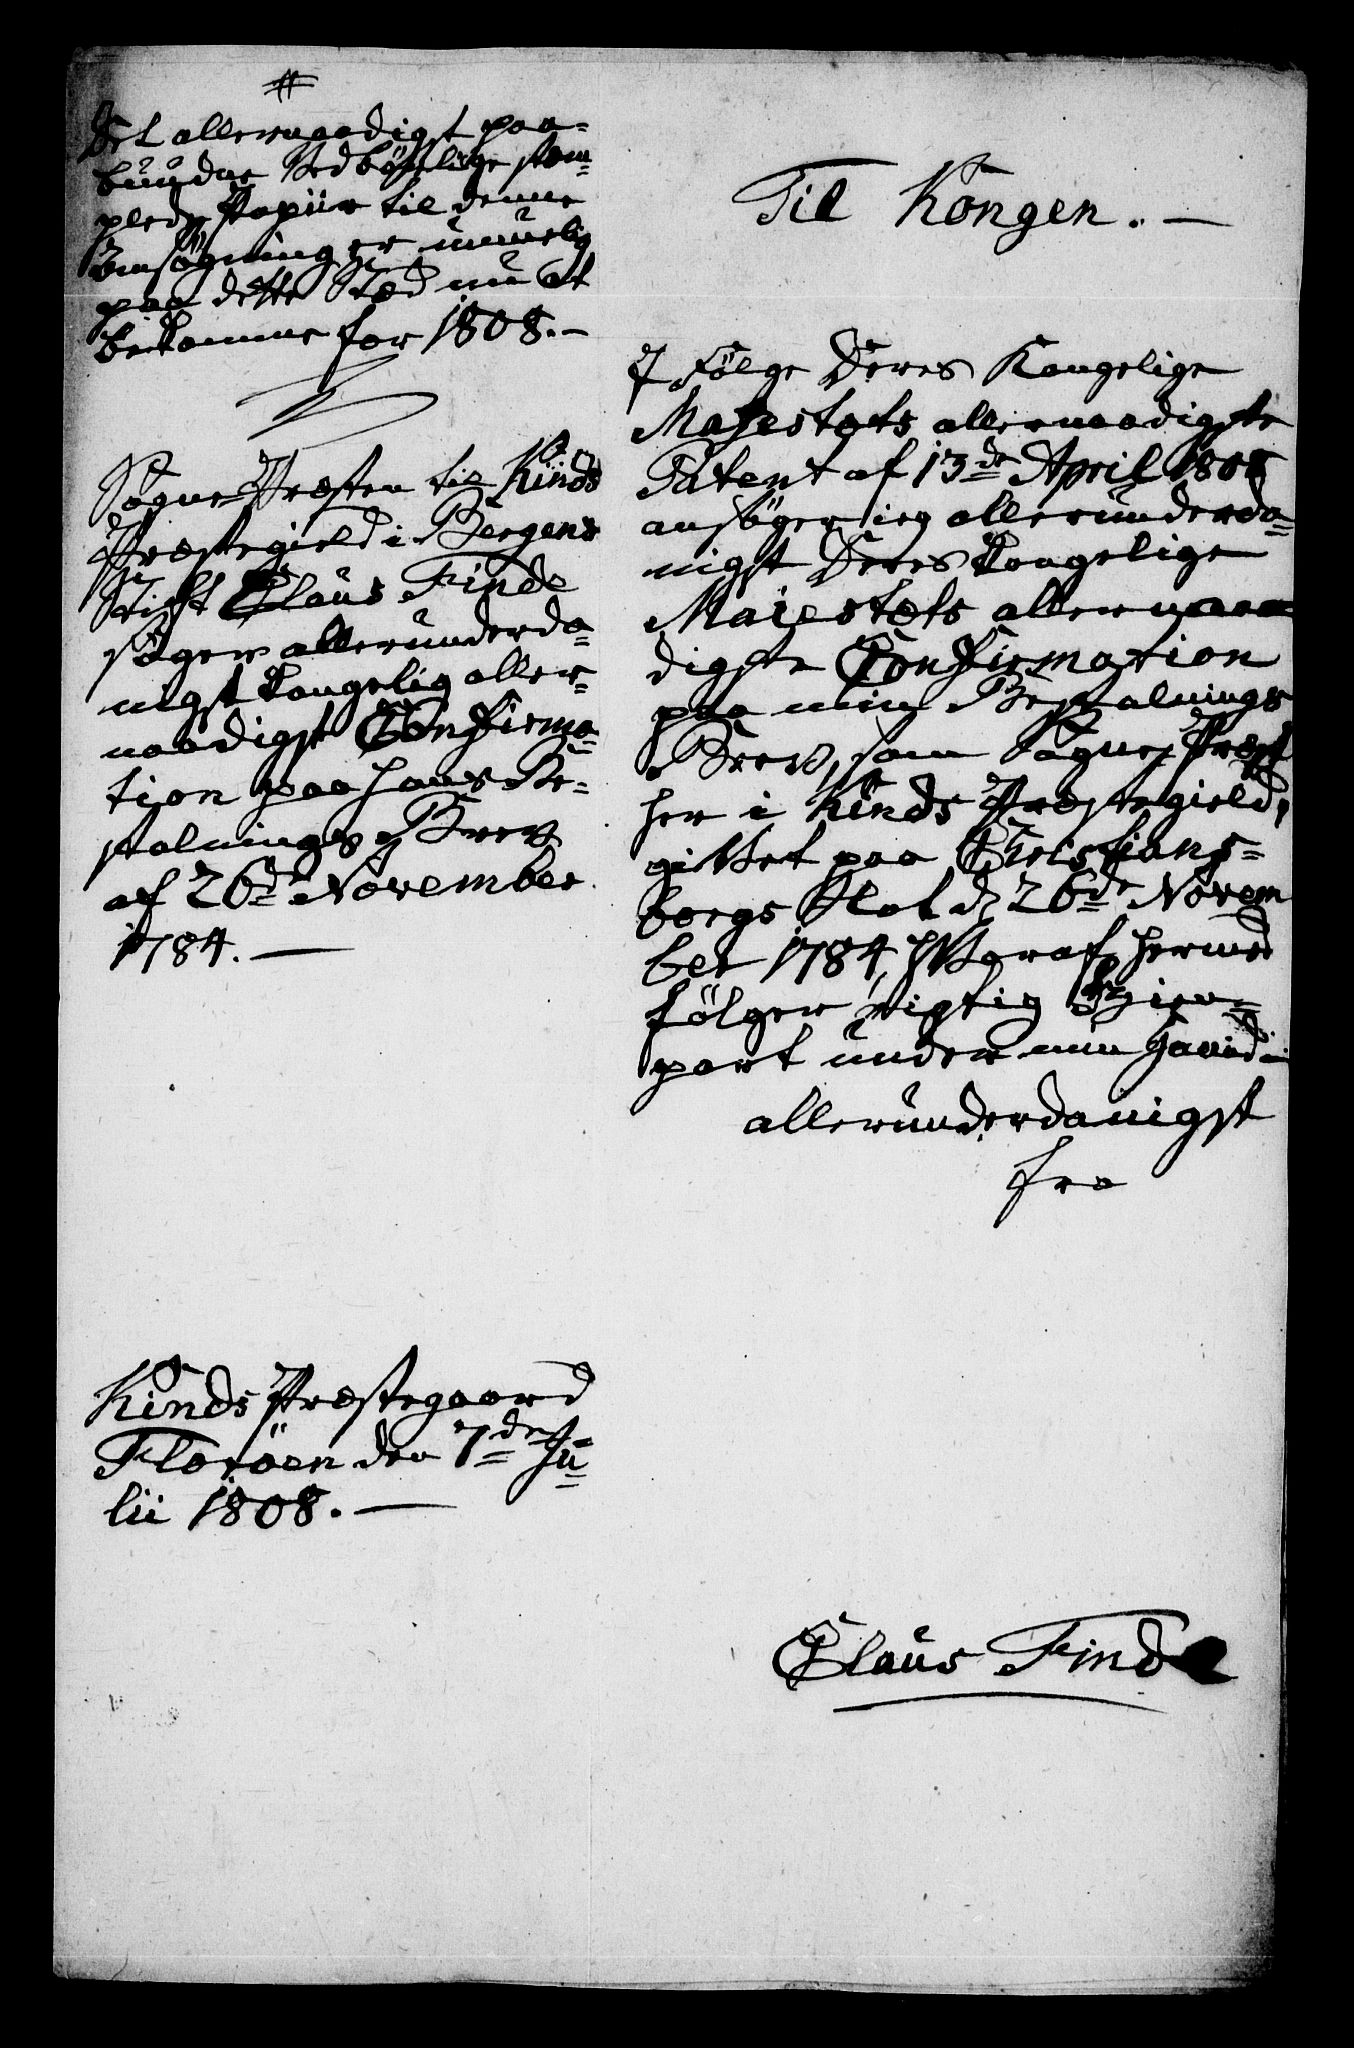 #
Det allernaadigst paa-
bundne Vedbørlige stem-
plede Papiir til denne
Ansøgning er umuelig
paa dette Stæd nu at
bekomme for 1808.-
Sogne-Præsten til Kinds
Præstegield i Bergens
Stift Claus Finde
søger allerunderda-
nigst kongelig aller-
naadigst Confirma-
tion paa hans Be-
stalnings Brev
af 26de November
1784. —
Kinds Præstegaard
Florøen den 7de Ju-
lii 1808. —
Til Kongen. —
J Følge Deres Kongelige
Majestæts allernaadigste
Patent af 13de April 1808
ansøger ieg allerunderda-
nigst Deres kongelige
Maiestæts allernaa-
digste Confirmation
paa min Bestalnings
Brev, som Sogne-Præst
her i Kinds Præstegield,
givet paa Christians-
borgs Slot d 26de Novem
ber 1784, hvoraf hermed
følger rigtig Gien-
part under min Haand
allerunderdanigst
fra
Claus Finde